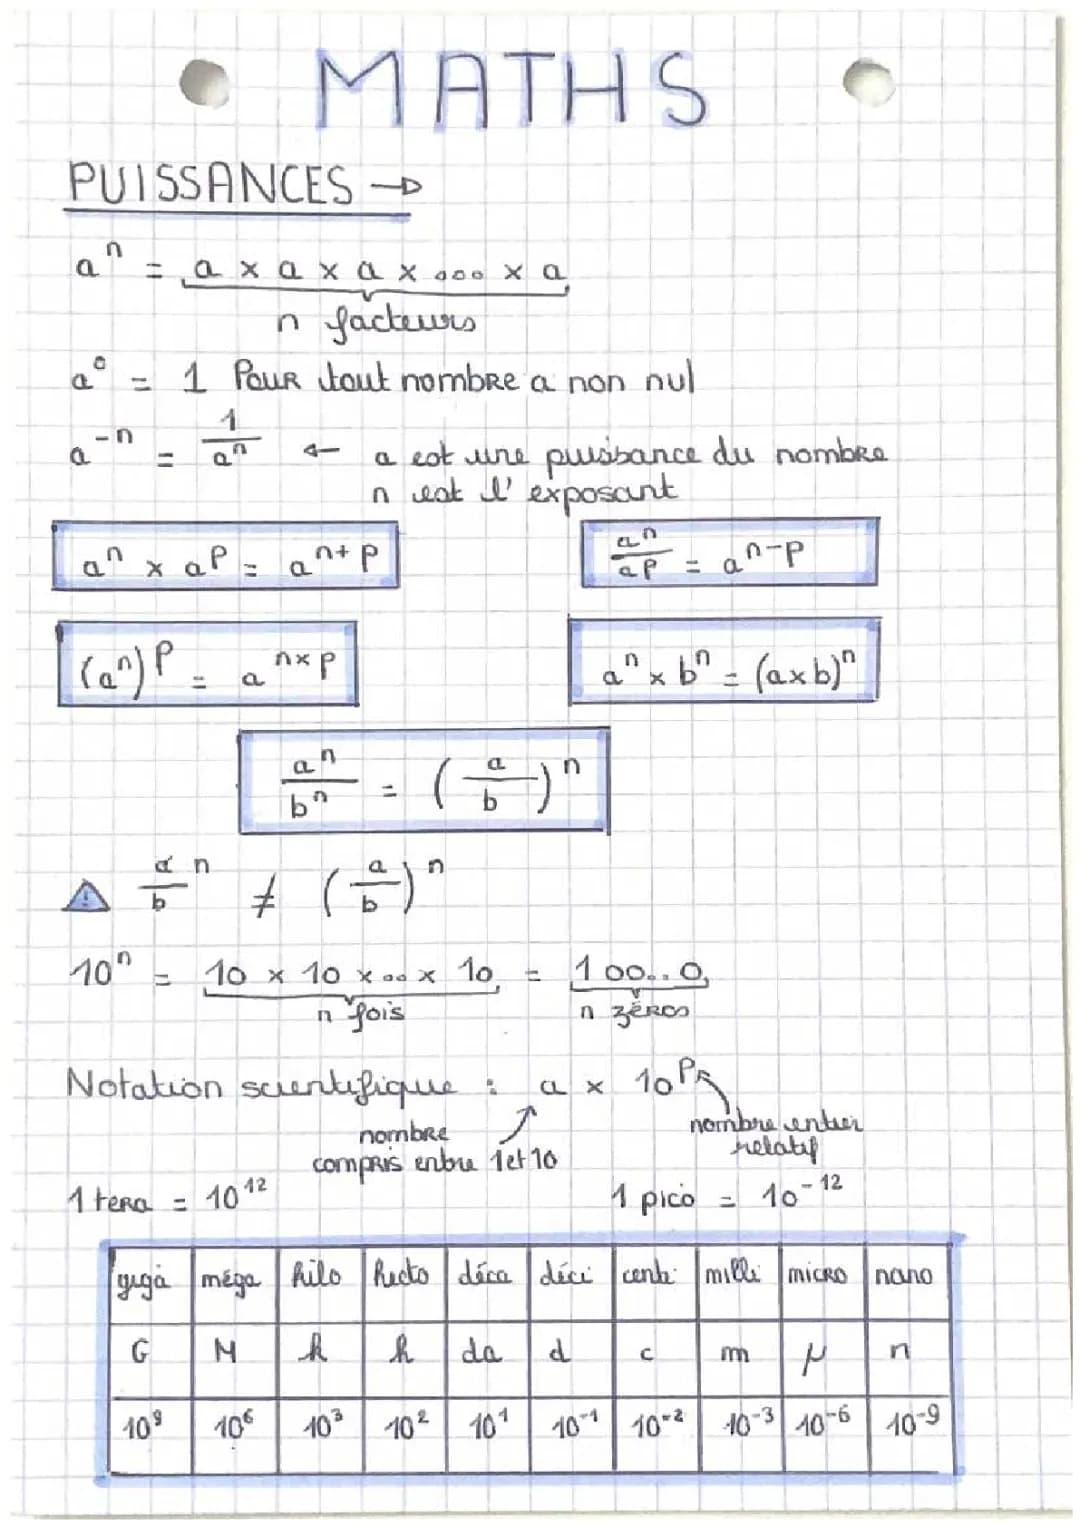 MATHS
PUISSANCES →
aⁿ = a x a x a x ... x a
n facteurs
a⁰ = 1 Pour tout nombre a non nul
a⁻ⁿ = 1/aⁿ ← a est une puissance du nombre
n est l'exposant
aⁿ x aᵖ = aⁿ⁺ᵖ    aⁿ/aᵖ = aⁿ⁻ᵖ
(aⁿ)ᵖ = aⁿˣᵖ    aⁿ x bⁿ = (axb)ⁿ
aⁿ/bⁿ = (a/b)ⁿ
⚠ a/b ⁿ ≠ (a/b)ⁿ
10ⁿ = 10 x 10 x ... x 10 = 100...0
n fois    n zéros
Notation scientifique : a x 10ᵖ
nombre compris entre 1 et 10
nombre entier relatif
1 tera = 10¹²    1 pico = 10⁻¹²
giga méga kilo hecto déca déci centi milli micro nano
G M k h da d c m μ n
10⁹ 10⁶ 10³ 10² 10¹ 10⁻¹ 10⁻² 10⁻³ 10⁻⁶ 10⁻⁹